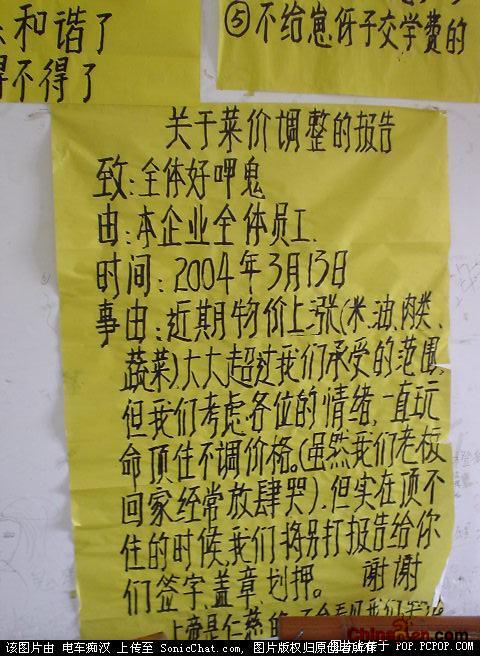 和谐了
得不得了
⑤不给崽伢子交学费的
关于菜价调整的报告
致:全体好呷鬼
由:本企业全体员工.
时间:2004年3月13日
事由:近期物价上涨(米、油、肉类、
蔬菜),大大超过我们承受的范围,
但我们考虑各位的情绪,一直玩
命顶住不调价格。(虽然我们老板
回家经常放肆哭).但实在顶不
住的时候,我们将另打报告给你
们签字、盖章、划押。 谢谢
上帝是仁慈的
China
该图片由 电车痴汉 上传至 SonicChat.com , 图片版权归原创者所有
图片属于 POP.PCPOP.COM